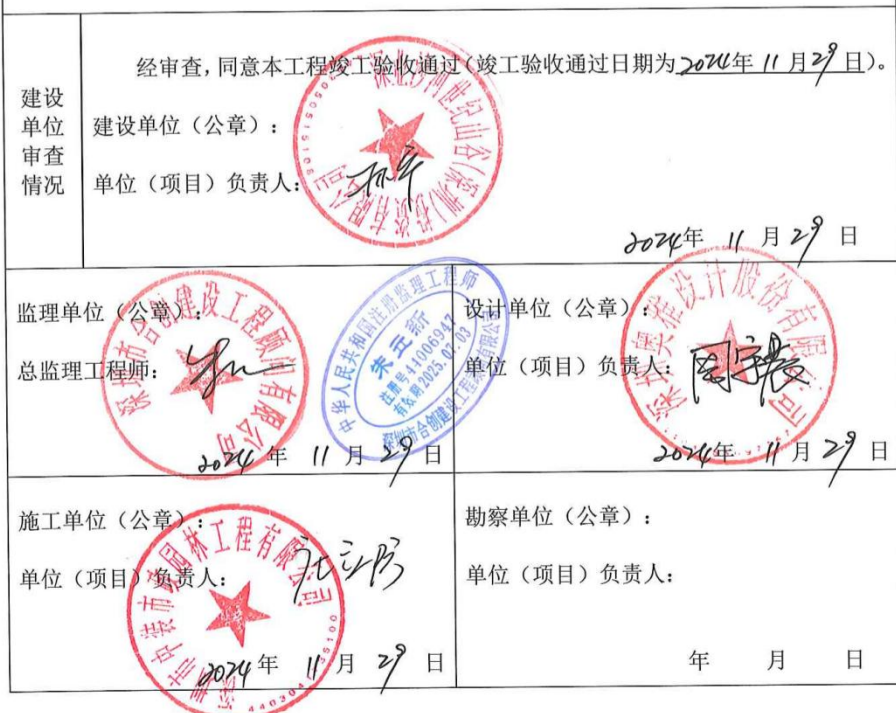 建设
单位
审查
情况
经审查,同意本工程竣工验收通过(竣工验收通过日期为2024年11月29日)。
建设单位(公章):
单位(项目)负责人:
2024年 11 月 29 日
监理单位(公章):
总监理工程师:
2024年 11 月 29 日
深圳市合创建设工程顾问有限公司
中华人民共和国注册监理工程师
朱立新
注册号41006947
有效期2025.07.03
深圳市合创建设工程顾问有限公司
设计单位(公章):
单位(项目)负责人:
2024年 11 月 29 日
深圳奥雅设计股份有限公司
施工单位(公章):
单位(项目)负责人:
2024年 11 月 29 日
勘察单位(公章):
单位(项目)负责人:
年 月 日